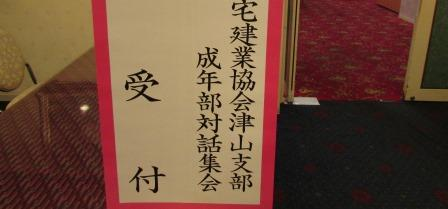 宅建業協会津山支部
成年部対話集会
受付